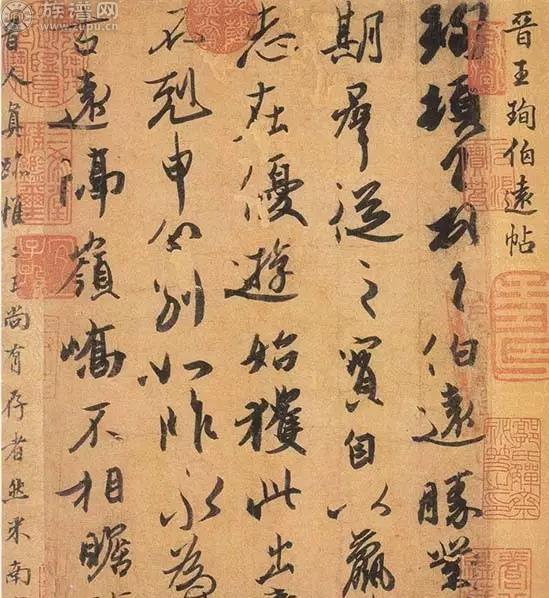 族谱网
www.zupu.cn
晉王珣伯遠帖
珣頓首頓首伯遠勝業
期羣從之寶自以羸
志在優遊始獲此出
不剋申分別如昨永為
古遠隔嶺嶠不相瞻
晉人真跡惟二王尚有存者然米南